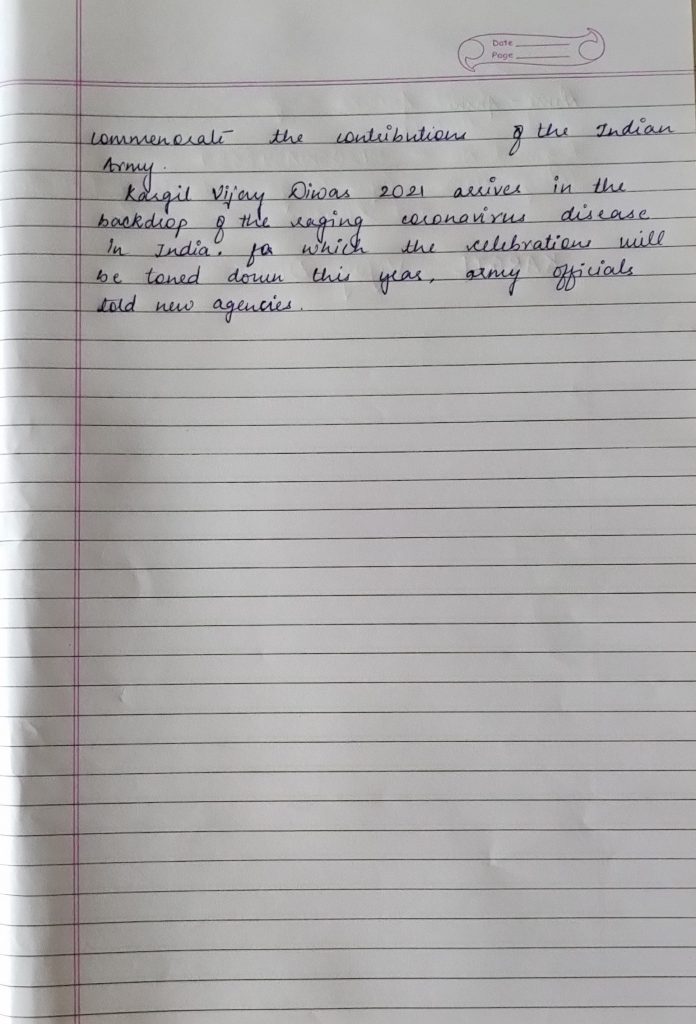 Date
Page
commenorate the contributions of the Indian
Army.
Kargil Vijay Diwas 2021 arrives in the
backdrop of the raging coronavirus disease
in India. for which the celebrations will
be toned down this year, army officials
told new agencies.